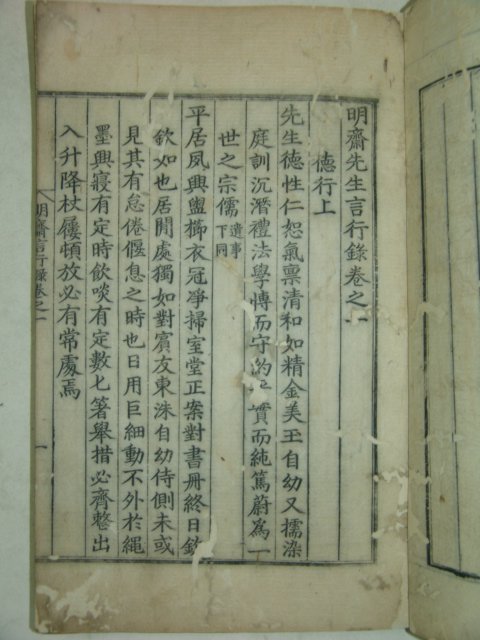 明齋先生言行錄卷之一
德行上
先生德性仁恕氣禀清和如精金美玉自幼又擩染
庭訓沉潛禮法學博而守的 實而純篤蔚爲一
世之宗儒遺事下同
平居夙興盥櫛衣冠凈掃室堂正案對書冊終日欽
欽如也居閒處獨如對賓友東洙自幼侍側未或
見其有怠倦偃息之時也日用巨細動不外於繩
墨興寢有定時飮啖有定數匕箸舉措必齊整出
入升降杖屨頓放必有常處焉
明齋言行錄卷之一
一